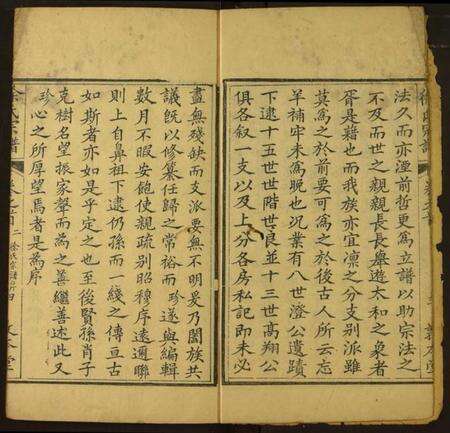 法久而亦湮前哲更為立譜以助宗法之
不及而世之親親長長樂遊太和之象者
胥是藉也而我族亦宜凛之分支別派雖
莫為之於前要可為之於後古人所云忘
羊補牢未為晚也況業有八世澄公遺蹟
下逮十五世世階世良並十三世高翔公
俱各叙一支以及上分各房私記即未必
盡無殘缺而支派要無不明晏乃闔族共
議既以修纂任歸之常裕而珍遂與編輯
數月不暇安飽使親疏別昭穆序遠邇聯
則上自鼻祖下逮仍孫而一綫之傳亘古
如斯者亦如是乎定之也至後賢孫肖子
克樹名望振家聲而為之善繼善述此又
珍心之所厚望焉者是為序
徐氏宗譜